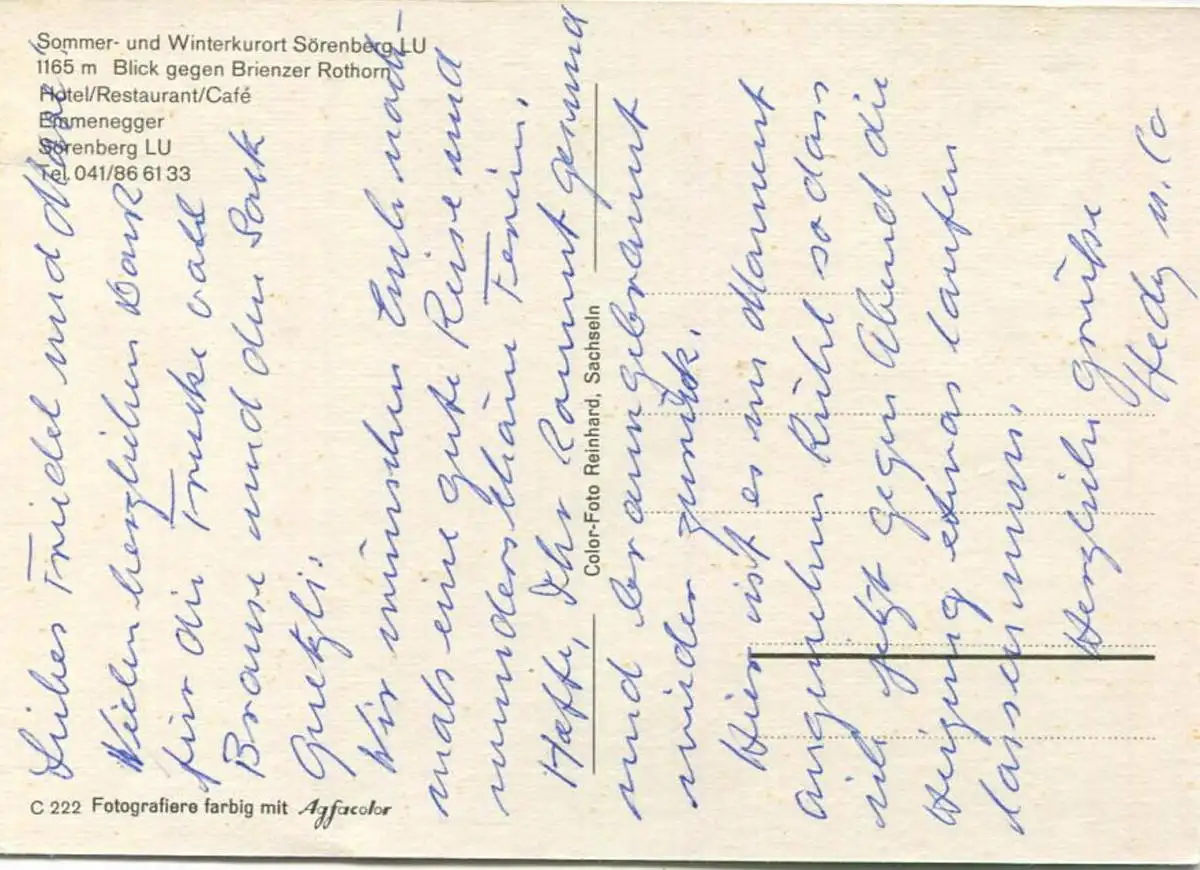 Sommer- und Winterkurort Sörenberg LU
1165 m Blick gegen Brienzer Rothorn
Hotel/Restaurant/Café
Emmenegger
Sörenberg LU
Tel. 041/86 61 33
Liebes Friedel und
Vielen herzlichen Dank
für die
Brause und den Sack
Guetzli.
Wir wünschen Euch noch-
mals eine gute Reise und
wunderschöne Ferien.
Hoffe, Ihr kommt gesund
und braungebrannt
wieder zurück.
Hier ist es im Moment
angenehm kühl sodass
ich jetzt gegen Abend die
Heizung etwas laufen
lassen muss.
Herzliche Grüsse
Hedy u. Co
Color-Foto Reinhard, Sachseln
C 222 Fotografiere farbig mit Agfacolor